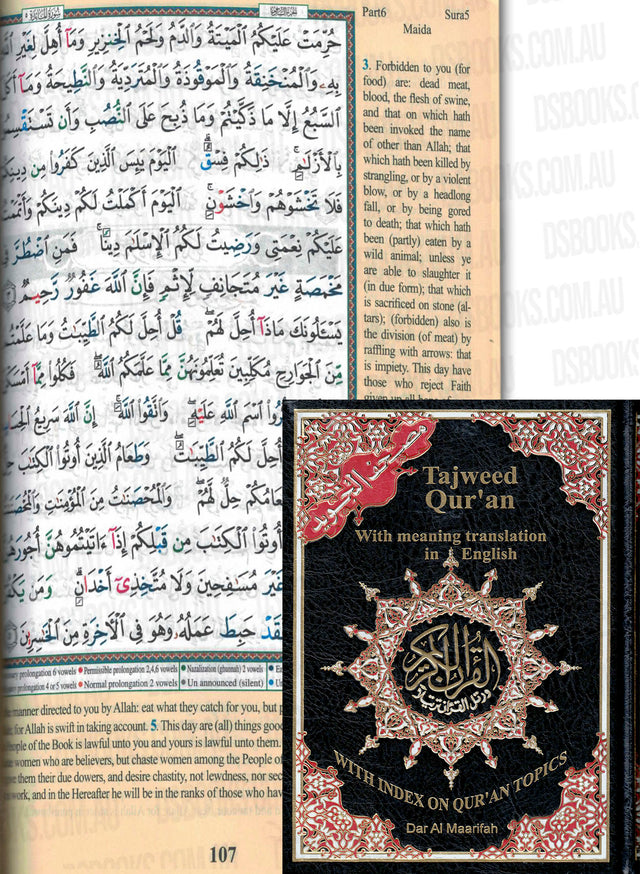 سورة المائدة ٥
الجزء السادس ٦
Part6 Sura5
Maida
حُرِّمَتْ عَلَيْكُمُ الْمَيْتَةُ وَالدَّمُ وَلَحْمُ الْخِنزِيرِ وَمَا أُهِلَّ لِغَيْرِ
بِهِ وَالْمُنْخَنِقَةُ وَالْمَوْقُوذَةُ وَالْمُتَرَدِّيَةُ وَالنَّطِيحَةُ وَمَا أَكَلَ
السَّبُعُ إِلَّا مَا ذَكَّيْتُمْ وَمَا ذُبِحَ عَلَى النُّصُبِ وَأَن تَسْتَقْسِمُوا
بِالْأَزْلَٰمِ ذَٰلِكُمْ فِسْقٌ الْيَوْمَ يَئِسَ الَّذِينَ كَفَرُوا مِن دِينِكُمْ
فَلَا تَخْشَوْهُمْ وَاخْشَوْنِ الْيَوْمَ أَكْمَلْتُ لَكُمْ دِينَكُمْ وَأَتْمَمْتُ
عَلَيْكُمْ نِعْمَتِي وَرَضِيتُ لَكُمُ الْإِسْلَٰمَ دِينًا فَمَنِ اضْطُرَّ فِي
مَخْمَصَةٍ غَيْرَ مُتَجَانِفٍ لِّإِثْمٍ فَإِنَّ اللَّهَ غَفُورٌ رَّحِيمٌ ٣
يَسْـَٔلُونَكَ مَاذَا أُحِلَّ لَهُمْ قُلْ أُحِلَّ لَكُمُ الطَّيِّبَٰتُ وَمَا عَلَّمْتُم
مِّنَ الْجَوَارِحِ مُكَلِّبِينَ تُعَلِّمُونَهُنَّ مِمَّا عَلَّمَكُمُ اللَّهُ فَكُلُوا مِمَّا أَمْسَكْنَ
اسْمَ اللَّهِ عَلَيْهِ وَاتَّقُوا اللَّهَ إِنَّ اللَّهَ سَرِيعُ الْحِسَابِ
أُحِلَّ لَكُمُ الطَّيِّبَٰتُ وَطَعَامُ الَّذِينَ أُوتُوا الْكِتَٰبَ حِلٌّ
حِلٌّ لَّهُمْ وَالْمُحْصَنَٰتُ مِنَ الْمُؤْمِنَٰتِ وَالْمُحْصَنَٰتُ
أُوتُوا الْكِتَٰبَ مِن قَبْلِكُمْ إِذَا ءَاتَيْتُمُوهُنَّ أُجُورَهُنَّ
غَيْرَ مُسَٰفِحِينَ وَلَا مُتَّخِذِي أَخْدَانٍ وَمَن يَكْفُرْ
فَقَدْ حَبِطَ عَمَلُهُ وَهُوَ فِي الْآخِرَةِ مِنَ الْخَٰسِرِينَ ٥
3. Forbidden to you (for
food) are: dead meat,
blood, the flesh of swine,
and that on which hath
been invoked the name
of other than Allah; that
which hath been killed by
strangling, or by a violent
blow, or by a headlong
fall, or by being gored
to death; that which hath
been (partly) eaten by a
wild animal; unless ye
are able to slaughter it
(in due form); that which
is sacrificed on stone (al-
tars); (forbidden) also is
the division (of meat) by
raffling with arrows: that
is impiety. This day have
those who reject Faith
given up all hope of
prolongation 6 vowels Permissible prolongation 2,4,6 vowels Nazalization (ghunnah) 2 vowels
prolongation 4 or 5 vowels Normal prolongation 2 vowels Un announced (silent)
manner directed to you by Allah: eat what they catch for you, but
for Allah is swift in taking account. 5. This day are (all) things good
people of the Book is lawful unto you and yours is lawful unto them.
women who are believers, but chaste women among the People of
them their due dowers, and desire chastity, not lewdness, nor
work, and in the Hereafter he will be in the ranks of those who
107
مصحف التجويد
Tajweed
Qur'an
With meaning translation
in English
القرآن الكريم
ورتل القرآن ترتيلا
WITH INDEX ON QUR'AN TOPICS
Dar Al Maarifah
DSBOOKS.COM.AU